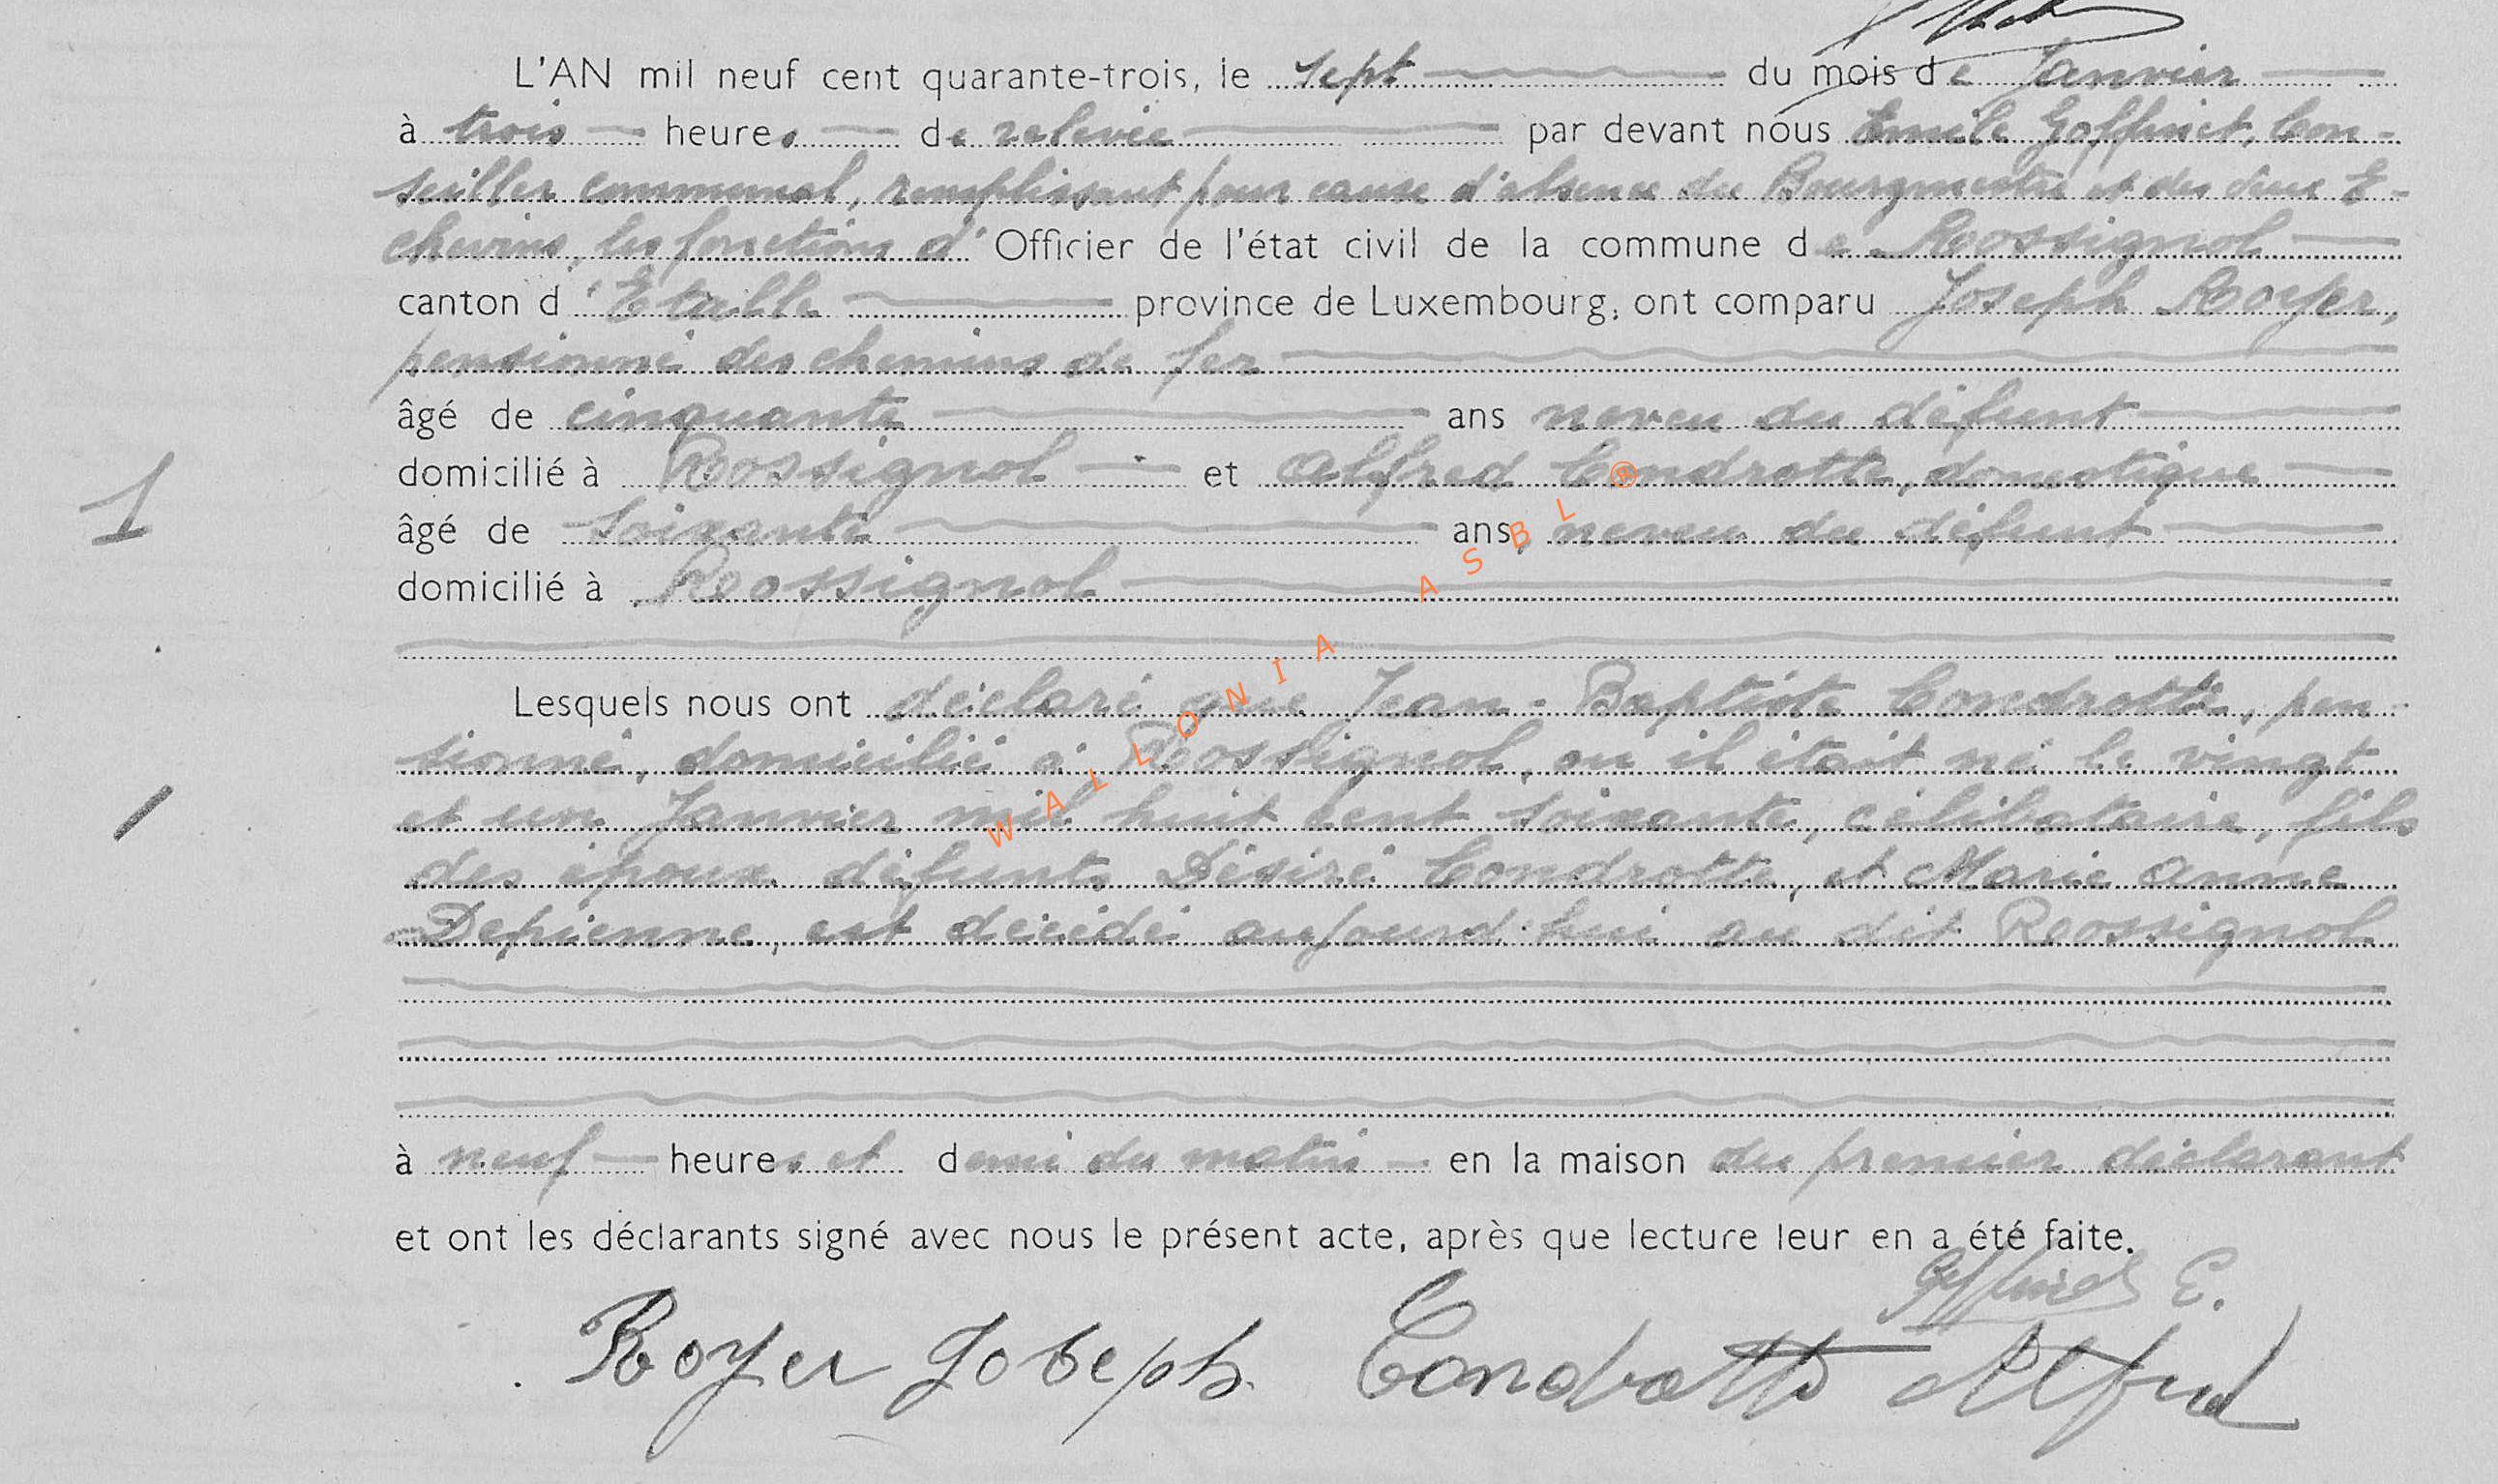 L'AN mil neuf cent quarante-trois, le sept du mois de Janvier
à trois heures de relevée par devant nous Emile Goffinet, Con-
seiller communal, remplissant pour cause d'absence du Bourgmestre et des deux E-
chevins, les fonctions d'Officier de l'état civil de la commune de Rossignol
canton d'Etalle province de Luxembourg, ont comparu Joseph Royer,
pensionné des chemins de fer
âgé de cinquante ans neveu du défunt
domicilié à Rossignol et Alfred Condrotte, domestique
âgé de soixante ans, neveu du défunt
domicilié à Rossignol
Lesquels nous ont déclaré que Jean-Baptiste Condrotte, pen-
sionné, domicilié à Rossignol, où il était né le vingt
et un Janvier mil huit cent soixante, célibataire, fils
des époux défunts Désiré Condrotte, et Marie Anne
Depienne, est décédé aujourd'hui au dit Rossignol
à neuf heures et demi du matin en la maison du premier déclarant
et ont les déclarants signé avec nous le présent acte, après que lecture leur en a été faite.
Goffinet E.
Royer Joseph Condrotte Alfred
1
WALLONIA ASBL ®